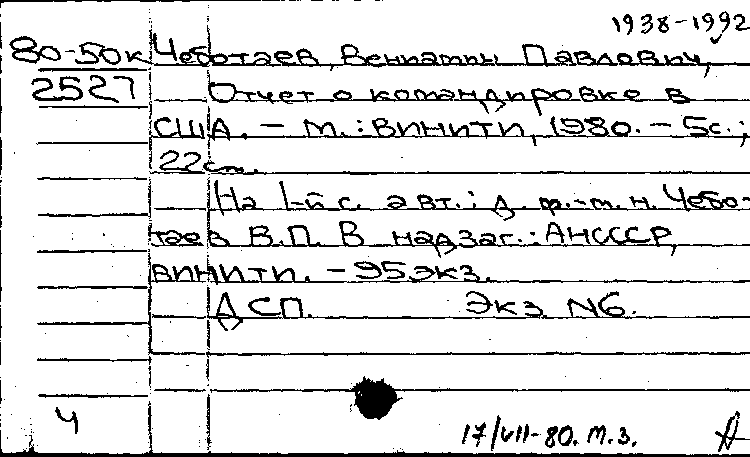 1938-1992
80-50к Чеботаев, Вениамин Павлович,
2527 Отчет о командировке в
США. - М.: ВИНИТИ, 1980. - 5с.;
22см.
На 1-й с. авт.: д. ф.-м. н. Чебо-
таев В.П. В надзаг.: АНСССР,
ВИНИТИ. - 95экз.
ДСП. Экз. N6.
Ч
17/VII-80. М.З.